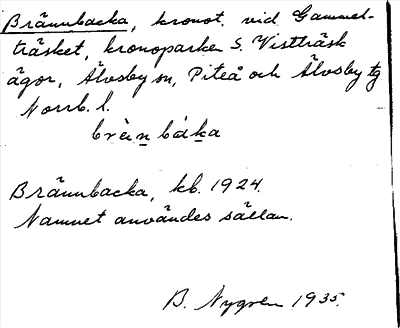 Brännbacka, kronot. vid Gammel-
träsket, kronoparken S. Vistträsk
ägor, Älvsby sn, Piteå och Älvsby tg
Norrb. l.
Brännbacka, kb. 1924.
Namnet användes sällan.
B. Nygren 1935.